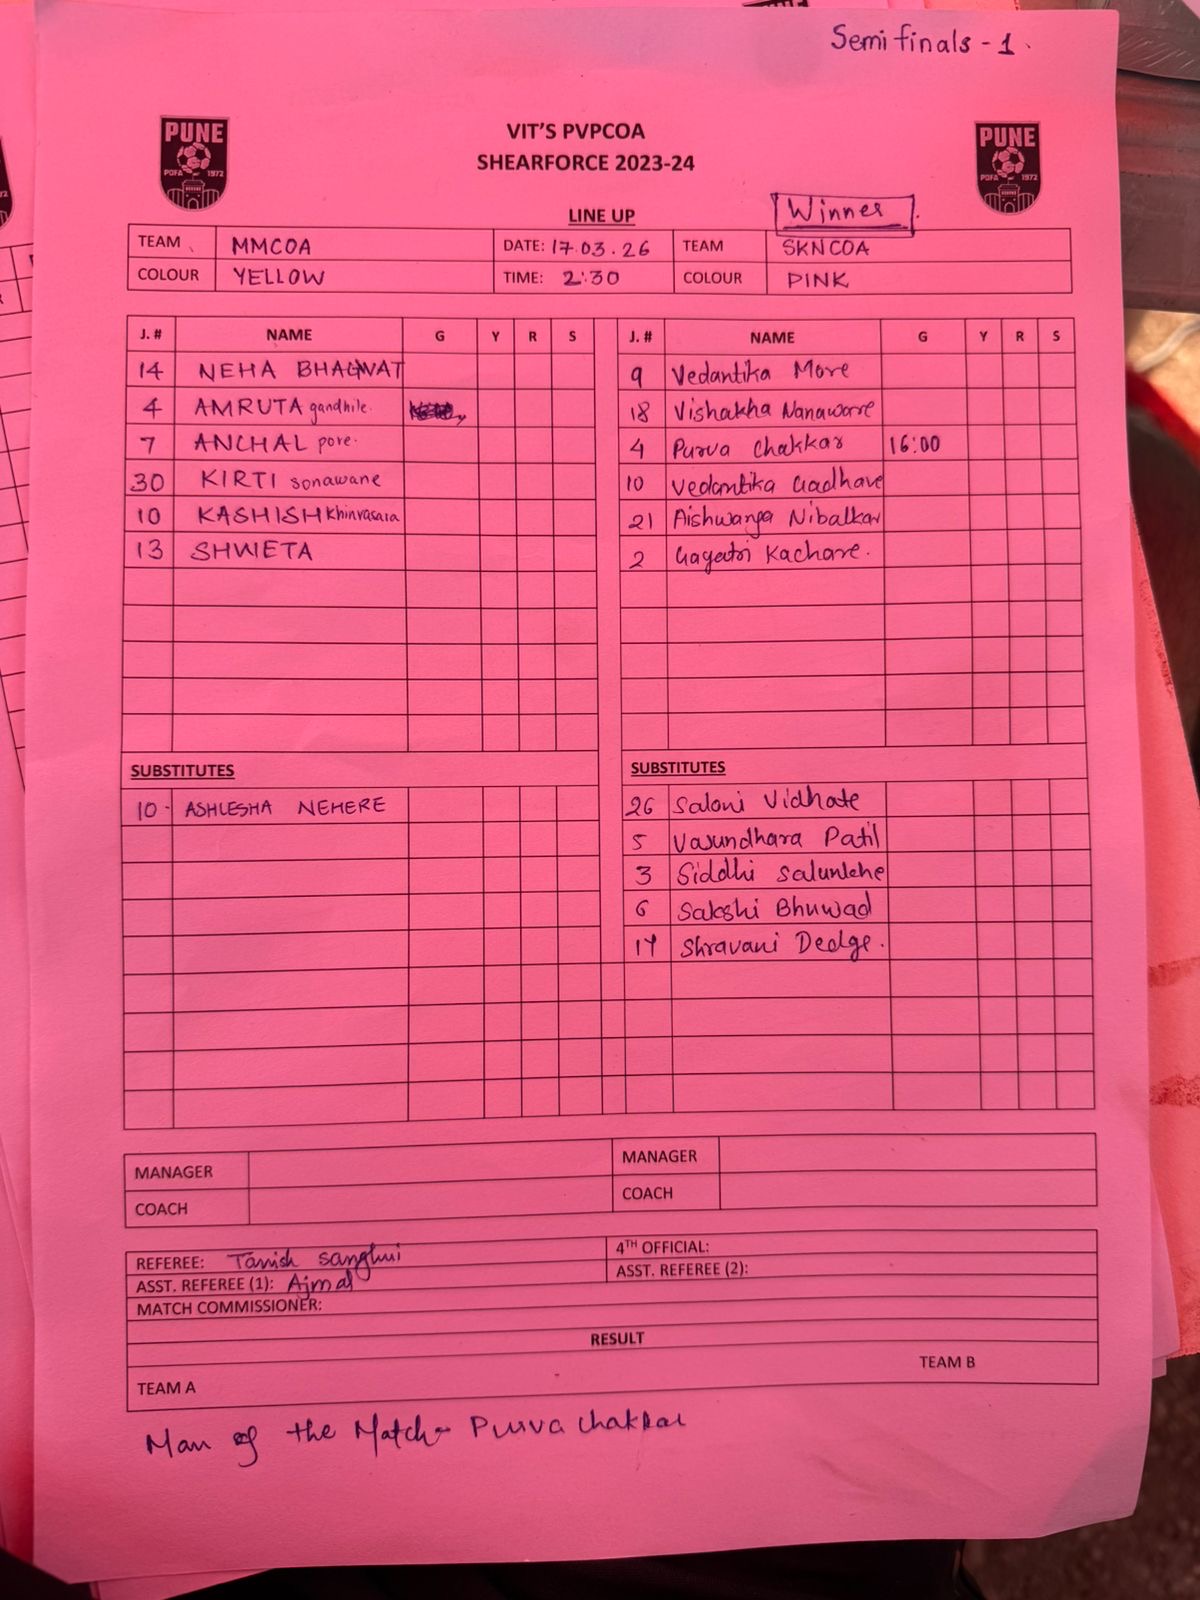 Semi finals - 1.
PUNE
PDFA 1972
VIT'S PVPCOA
SHEARFORCE 2023-24
PUNE
PDFA 1972
LINE UP
Winner
TEAM MMCOA DATE: 17.03.26 TEAM SKNCOA
COLOUR YELLOW TIME: 2:30 COLOUR PINK
J. # NAME G Y R S J. # NAME G Y R S
14 NEHA BHAGWAT 9 Vedantika More
4 AMRUTA gandhile. 18 Vishakha Nanaware
7 ANCHAL pore. 4 Purva Chakkar 16:00
30 KIRTI sonawane 10 Vedantika Gadhave
10 KASHISH Khinvasara 21 Aishwarya Nibalkar
13 SHWETA 2 Gayatri Kachare.
SUBSTITUTES SUBSTITUTES
10 - ASHLESHA NEHERE 26 Saloni Vidhate
5 Vasundhara Patil
3 Siddhi Salunkhe
6 Sakshi Bhuwad
17 Shravani Dedge.
MANAGER MANAGER
COACH COACH
REFEREE: Tanish Sanghvi 4TH OFFICIAL:
ASST. REFEREE (1): Ajmal ASST. REFEREE (2):
MATCH COMMISSIONER:
RESULT
TEAM A TEAM B
Man of the Match - Purva Chakkar